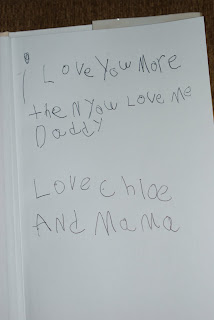 i Love You More
the N You Love Me
Daddy
Love Chloe
And Mama